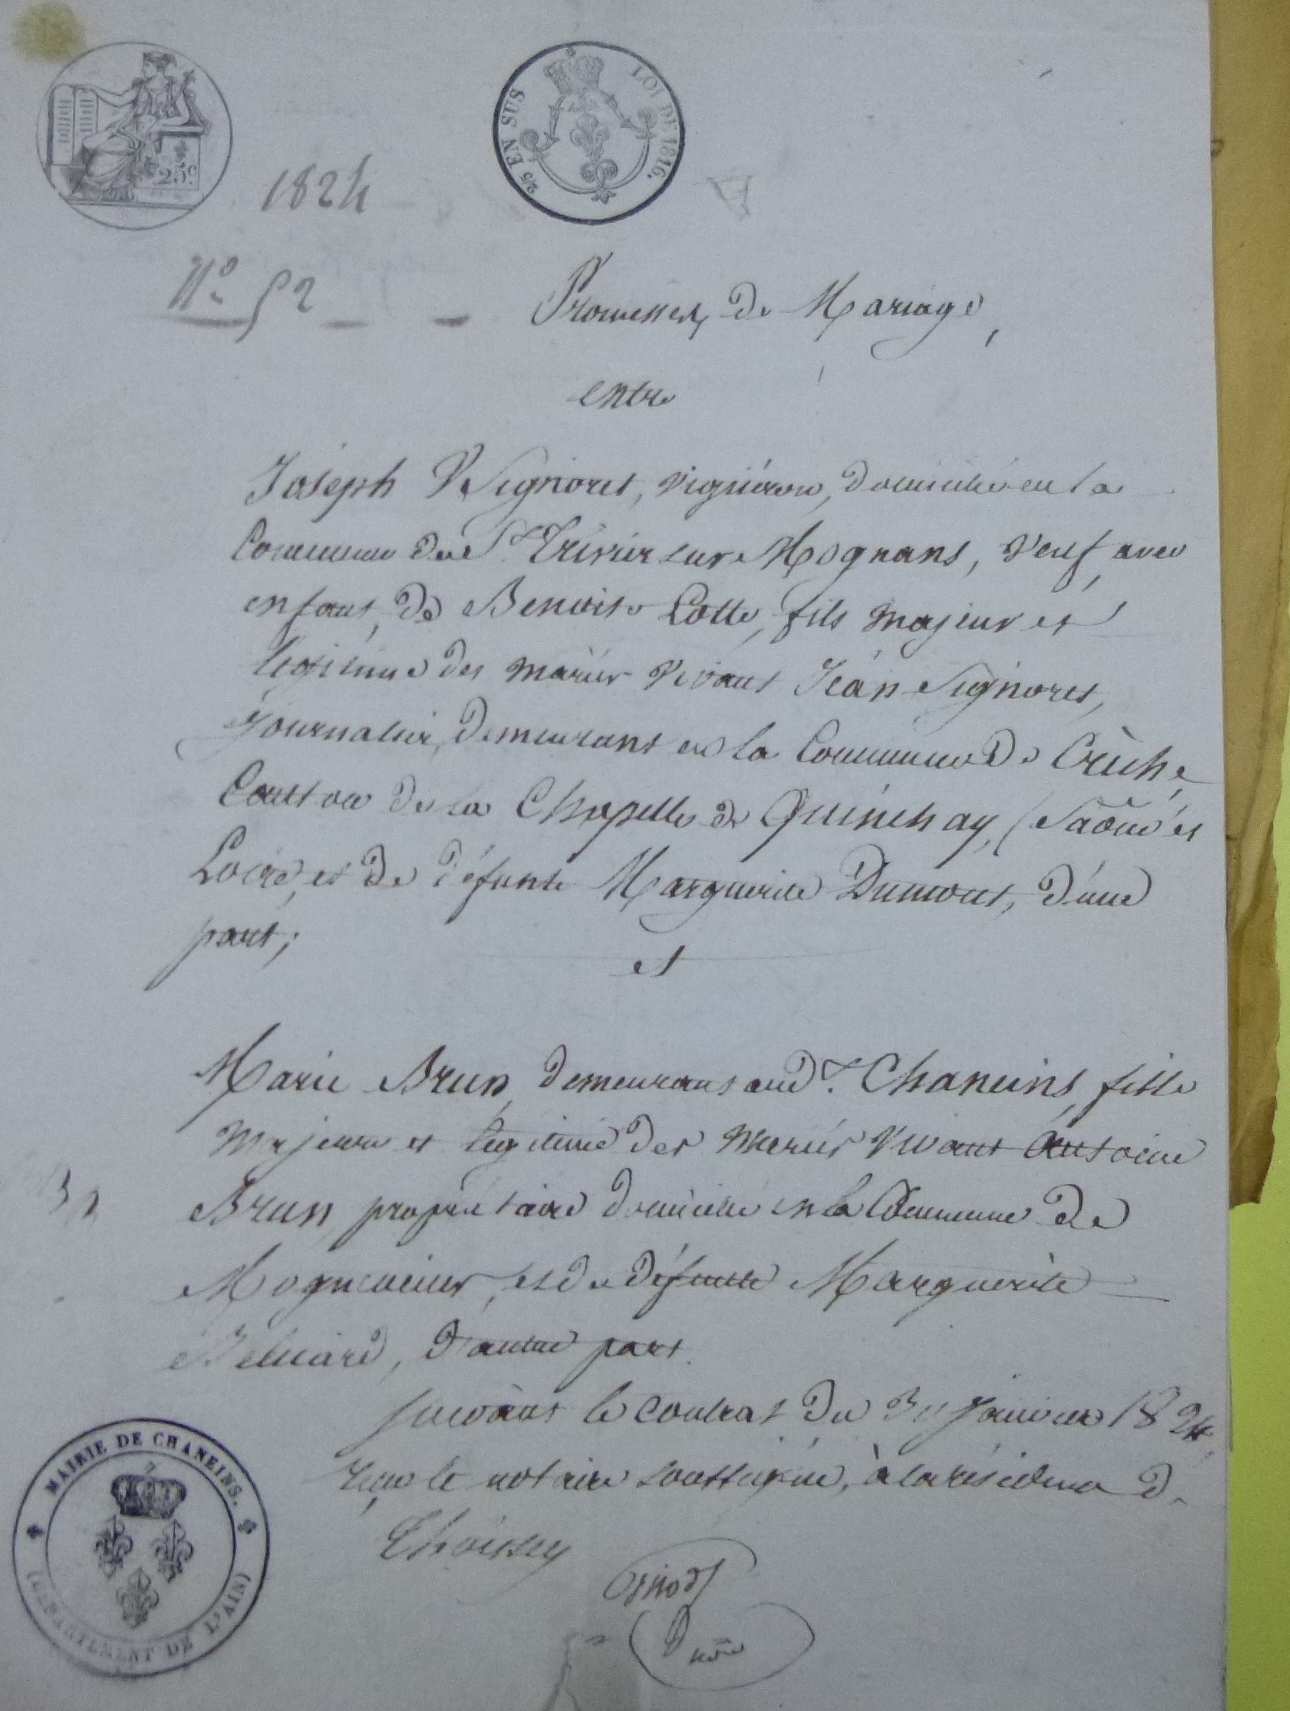 25c
2/5 EN SUS
LOI DE 1816.
1824
N° 52
Promesses de Mariage,
entre
Joseph Signoret, vigneron, domicilié en la
Commune de St Trivier sur Mognans, veuf, avec
enfant, de Benoite Lotte, fils majeur et
légitime des mariés vivant Jean Signoret,
journalier, demeurant en la Commune de Crêche,
Canton de la Chapelle de Guinchay, (Saône et
Loire, et de défunte Marguerite Dumont, d'une
part;
et
Marie Brun, demeurant aud.t Chaneins, fille
majeure et légitime des mariés vivant Antoine
Brun, propriétaire domicilié en la Commune de
Mogneneins, et de défunte Marguerite
Beluard, d'autre part.
suivant le contrat du janvier 1824,
reçu le notaire soussigné, à la résidence de
Thoissey
MAIRIE DE CHANEINS.
(DEPARTEMENT DE L'AIN)